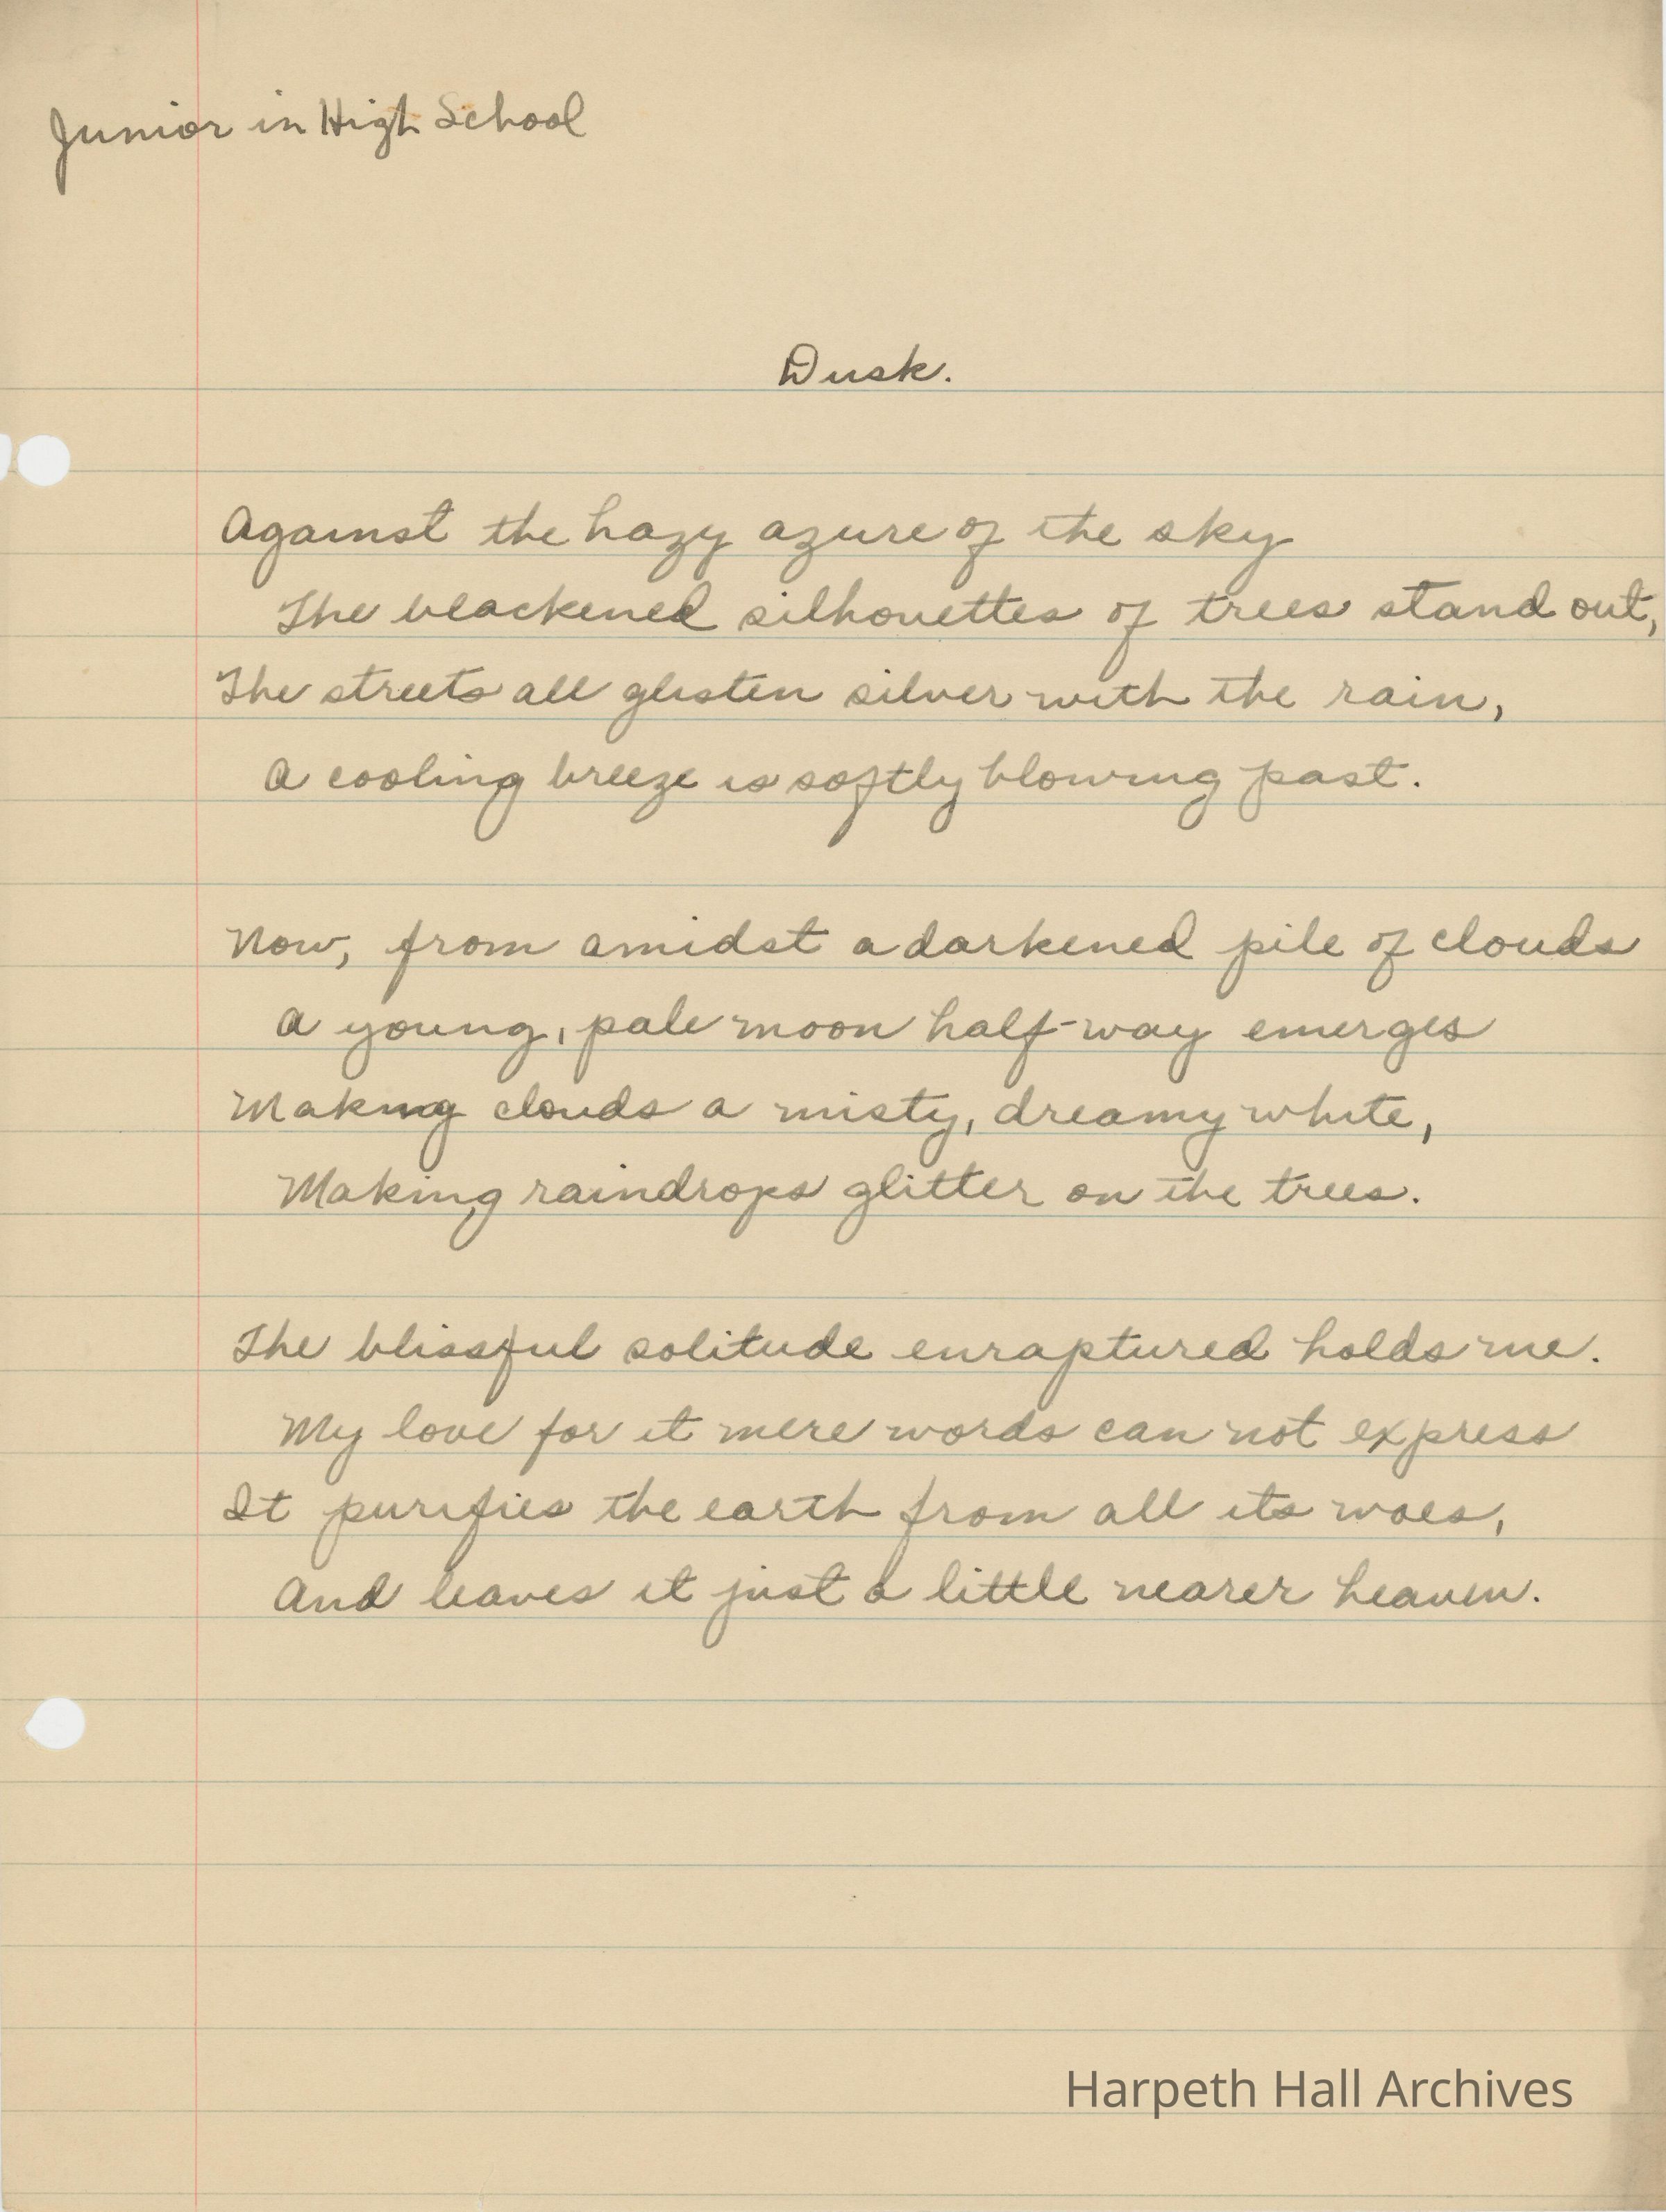 Junior in High School
Dusk.
Against the hazy azure of the sky
The blackened silhouettes of trees stand out,
The streets all glisten silver with the rain,
A cooling breeze is softly blowing past.
Now, from amidst a darkened pile of clouds
A young, pale moon half-way emerges
Making clouds a misty, dreamy white,
Making raindrops glitter on the trees.
The blissful solitude enraptured holds me.
My love for it mere words can not express
It purifies the earth from all its woes,
And leaves it just a little nearer heaven.
Harpeth Hall Archives